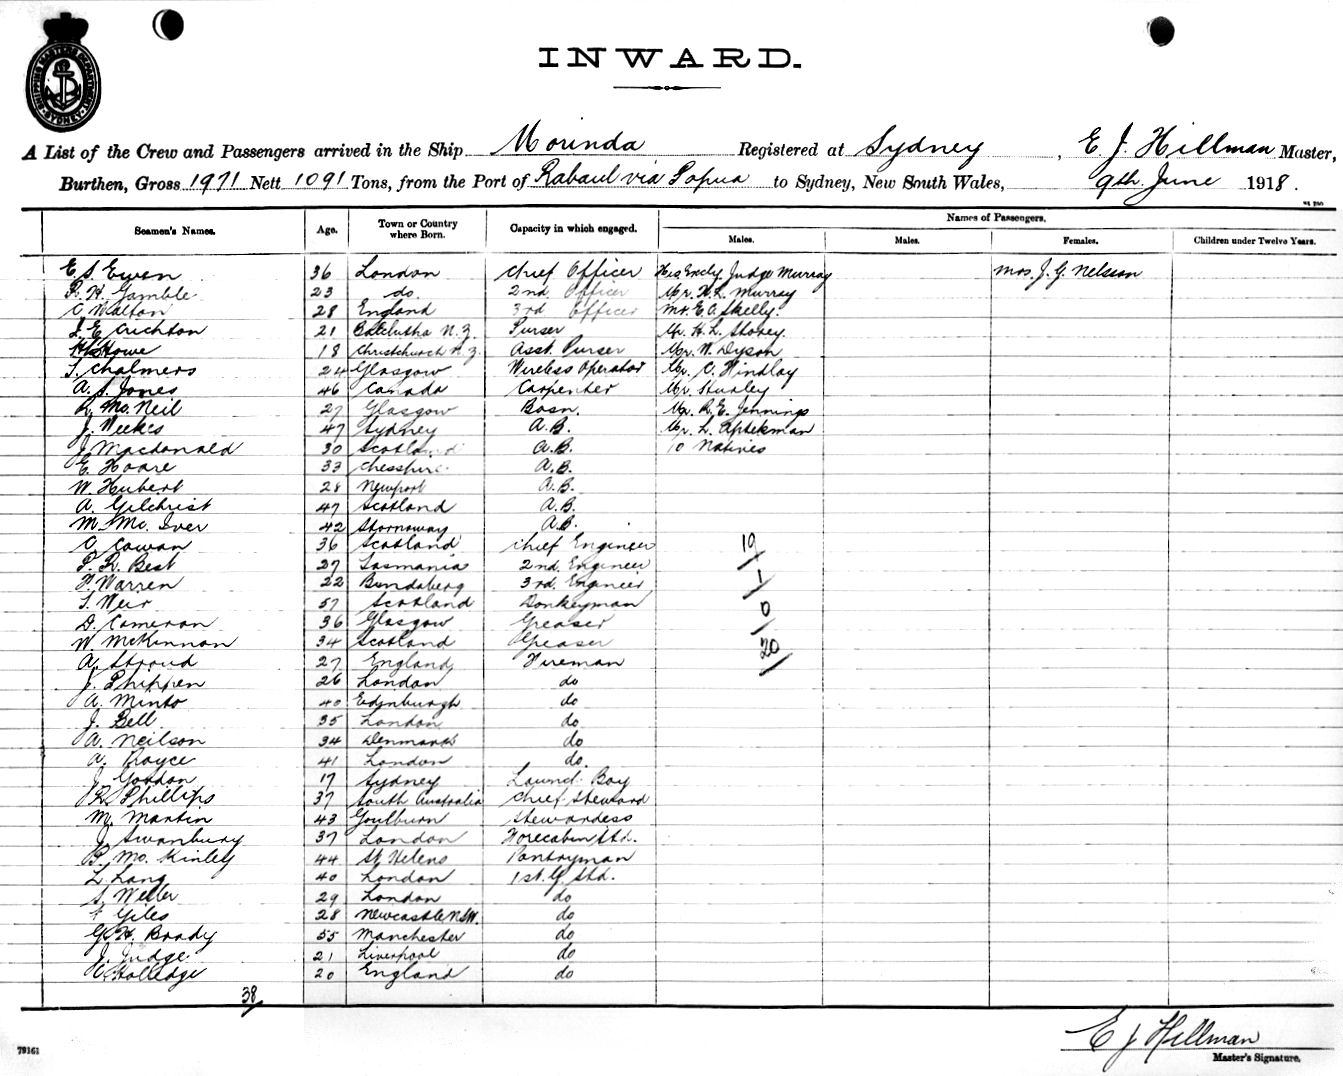 INWARD.
SHIPPING MASTERS DEPARTMENT SYDNEY
A List of the Crew and Passengers arrived in the Ship Morinda Registered at Sydney, E J. Hillman Master,
Burthen, Gross 1971 Nett 1091 Tons, from the Port of Rabaul via Papua to Sydney, New South Wales, 9th June 1918.
Names of Passengers.
Seamen's Names. Age. Town or Country where Born. Capacity in which engaged. Males. Males. Females. Children under Twelve Years.
E. S. Ewen 36 London Chief Officer His Excly. Judge Murray Mrs. J. G. Nelsson
R. H. Gamble 23 do. 2nd Officer Mr. H. L. Murray
C. Walton 28 England 3rd Officer Mr. E. A. Skelly.
J. E. Crichton 21 Balclutha N.Z. Purser Mr. H. L. Storey.
Howe 18 Christchurch N.Z. Asst. Purser Mr. W. Dyson
T. Chalmers 24 Glasgow Wireless Operator Mr. C. Hindlay
A. S. Jones 46 Canada Carpenter Mr. Huxley
R. Mc. Neil 27 Glasgow Bosn. Mr. R. E. Jennings
J. Weekes 47 Sydney A.B. Mr. L. Aptekman
J. Macdonald 30 Scotland A.B. 10 Natives
E. Hoare 33 Chesshire. A.B.
W. Hubert 28 Newport A.B.
A. Gilchrist 47 Scotland A.B.
M. Mc. Iver 42 Stornoway A.B.
C. Cowan 36 Scotland Chief Engineer 19
P. R. Best 27 Tasmania 2nd. Engineer
F. Warren 22 Bundaberg 3rd. Engineer 1
T. Weir 57 Scotland Donkeyman 0
D. Cameron 36 Glasgow Greaser
W. McKinnon 34 Scotland Greaser 20
A. Stroud 27 England Fireman
J. Phippen 26 London do
A. Minto 40 Edinburgh do
J. Bell 35 London do
A. Neilson 34 Denmark do
A. Royce 41 London do.
J. Gordon 17 Sydney Laund. Boy
R. Phillips 37 South Australia Chief Steward
M. Martin 43 Goulburn Stewardess
J. Swanbury 37 London Forecabin Std.
B. Mc. Kinley 44 St Helens Pantryman
L. Lang 40 London 1st. G. Std.
S. Weller 29 London do
Giles 28 Newcastle N.S.W. do
G. H. Brady 55 Manchester do
J. Judge 21 Liverpool do
C. Holledge 20 England do
38
E J Hillman
Master's Signature.
79161